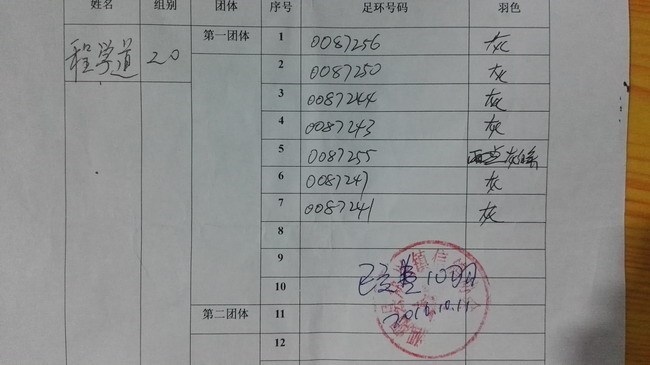 姓名 组别 团体 序号 足环号码 羽色
程学道 20 第一团体 1 0087256 灰
2 0087250 灰
3 0087244 灰
4 0087243 灰
5 0087255
6 0087247 灰
7 0087241 灰
8
9
10
第二团体 11 2016.10.11
12